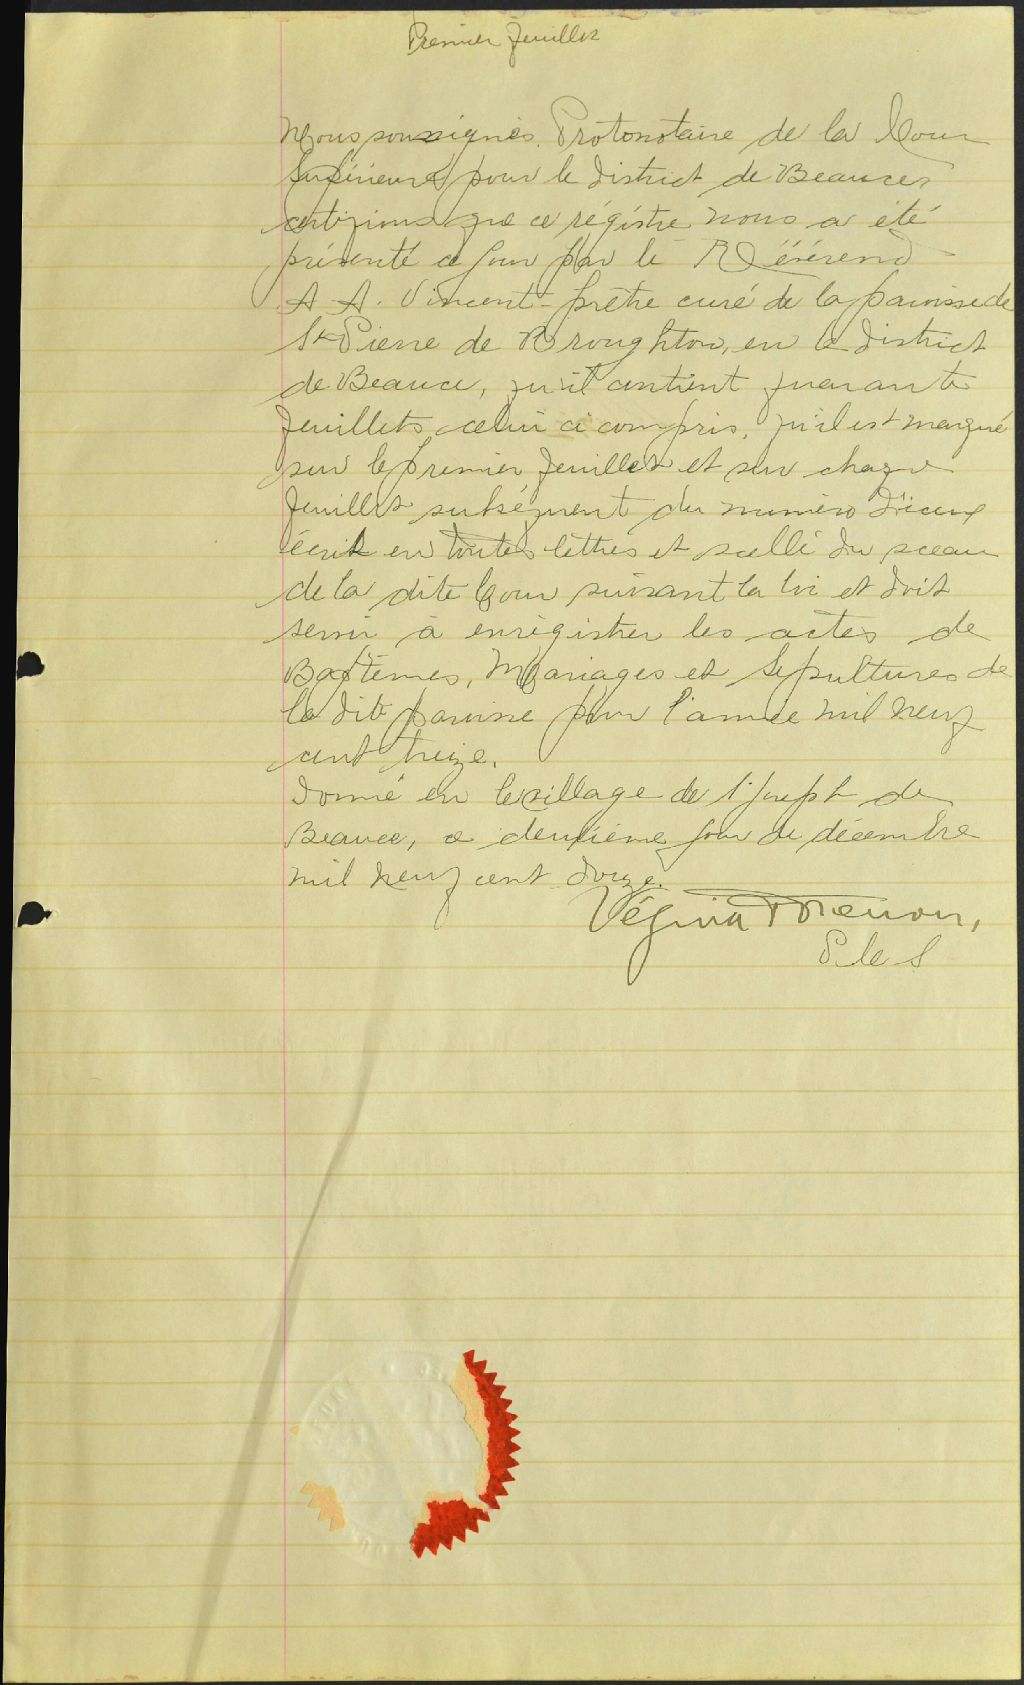 Premier feuillet
Nous soussignés, Protonotaire de la Cour
Supérieure pour le district de Beauce,
certifions que ce régistre nous a été
présenté ce jour par le Révérend
A A. Vincent - prêtre curé de la paroisse de
St Pierre de Broughton, en le district
de Beauce, qu'il contient quarante
feuillets celui ci compris, qu'il est marqué
sur le premier feuillet et sur chaque
feuillet subséquent du numéro d'iceux
écrit en toutes lettres et scellé du sceau
de la dite Cour suivant la loi et doit
servir à enrégistrer les actes de
Baptêmes, Mariages et Sépultures de
la dite paroisse pour l'année mil neuf
cent treize.
Donné en le village de St Joseph de
Beauce, ce deuxième jour de décembre
mil neuf cent douze.
Vézina
P C S